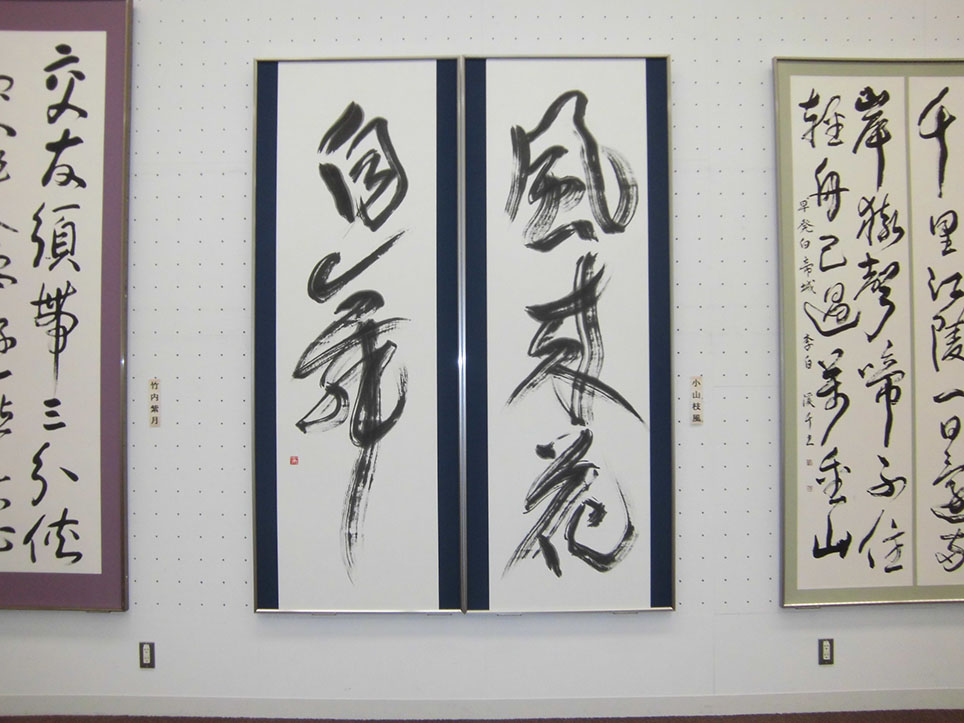 千里江陵一日還両
岸猿聲啼不住
軽舟已過萬重山
早発白帝城 李白
小山枝風
風来花
自舞
竹内紫月
交友須帯三分侠